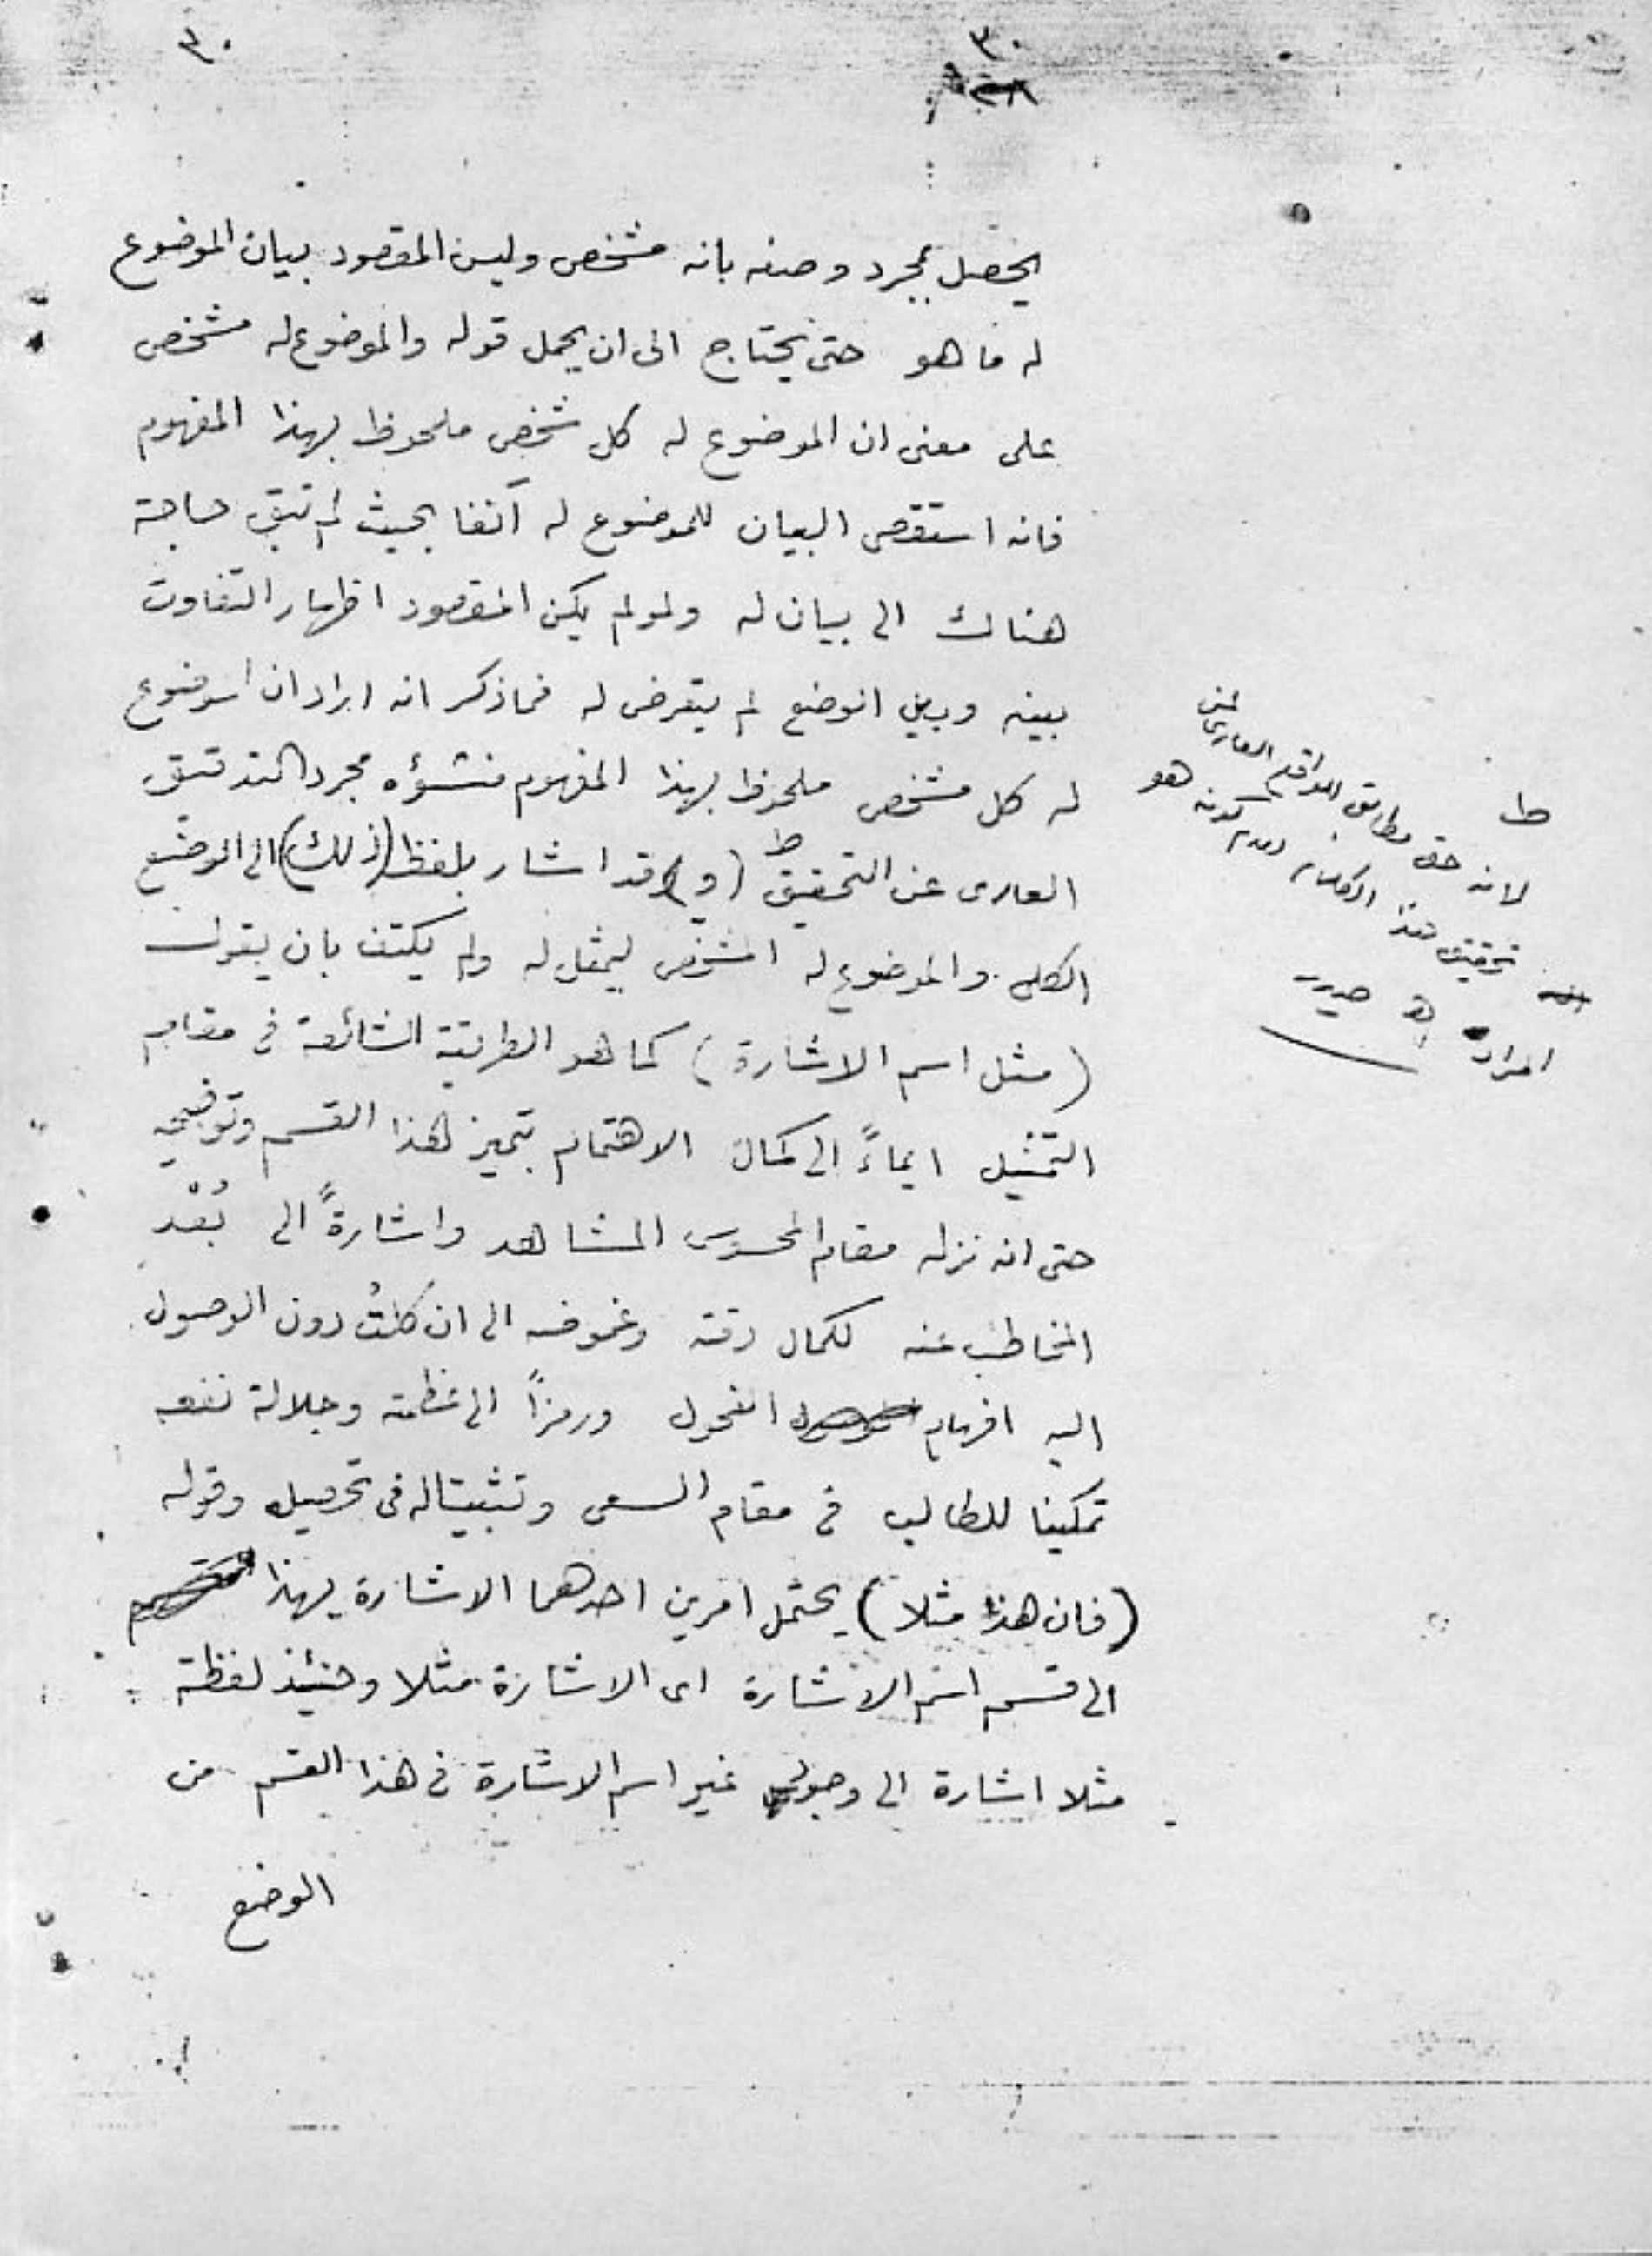 ٣٠
٣٠
يحصل بمجرد وصفه بانه مشخص وليس المقصود بيان الموضوع
له ما هو حتى يحتاج الى ان يحمل قوله والموضوع له مشخص
على معنى ان الموضوع له كل شخص ملحوظ بهذا المفهوم
فانه استقصى البيان للموضوع له آنفا بحيث لم تبق حاجة
هناك الى بيان له ولو لم يكن المقصود اظهار التفاوت
بينه وبين الوضع لم يتعرض له فماذكر انه اراد ان الموضوع
له كل مشخص ملحوظ بهذا المفهوم منشؤه مجرد التدقيق
العارى عن التحقيق ط (و) قد اشار بلفظ (ذلك) الى الوضع
الكلى والموضوع له المشخص ليمثل له ولم يكتف بان يقول
(مثل اسم الاشارة) كما هو الطريقة الشائعة فى مقام
التمثيل ايماءً الى كمال الاهتمام بتميز هذا القسم وتوضيحه
حتى انه نزله مقام المحسوس المشاهد واشارةً الى بُعْد
المخاطب عنه لكمال دقته وغموضه الى ان كلتْ دون الوصول
اليه افهام الفحول ورمزاً الى عظمته وجلالة نفعه
تمكينا للطالب فى مقام السعى وتثبيتا له فى تحصيله وقوله
(فان هذا مثلا) يحتمل امرين احدهما الاشارة بهذا
الى قسم اسم الاشارة اى الاشارة مثلا وحينئذ لفظة
مثلا اشارة الى وجود غير اسم الاشارة فى هذا القسم من
الوضع
ط
لانه حق مطابق للواقع العارى عن
تحقيق هذا الكلام وعدم كونه هو
المراد اه